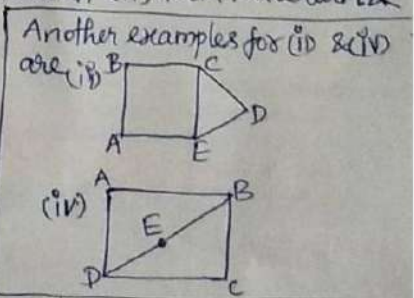 Another examples for (ii) & (iv)
are, (ii) B C
D
A E
A B
(iv)
E
D C